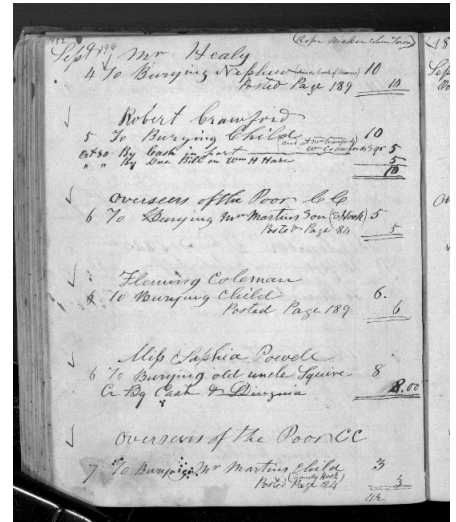 Mr Healy
4 To Burying Nephew 10
Posted Page 189 10
Robert Crawford
5 To Burying Child 10
Oct 30 By Cash in part 5
" " By Due Bill on Wm H Hare 5
10
Overseers of the Poor CC
6 To Burying Mr Martins Son (S Hook) 5
Posted Page 84 5
Fleming Coleman
To Burying Child 6.
Posted Page 189 6
Miss Saphia Powell
6 To Burying old uncle Squire 8
Cr By Cash 8.00
Overseers of the Poor CC
7 To Burying Mr Martins Child 3
(Sandy Hook)
Posted Page 84 3